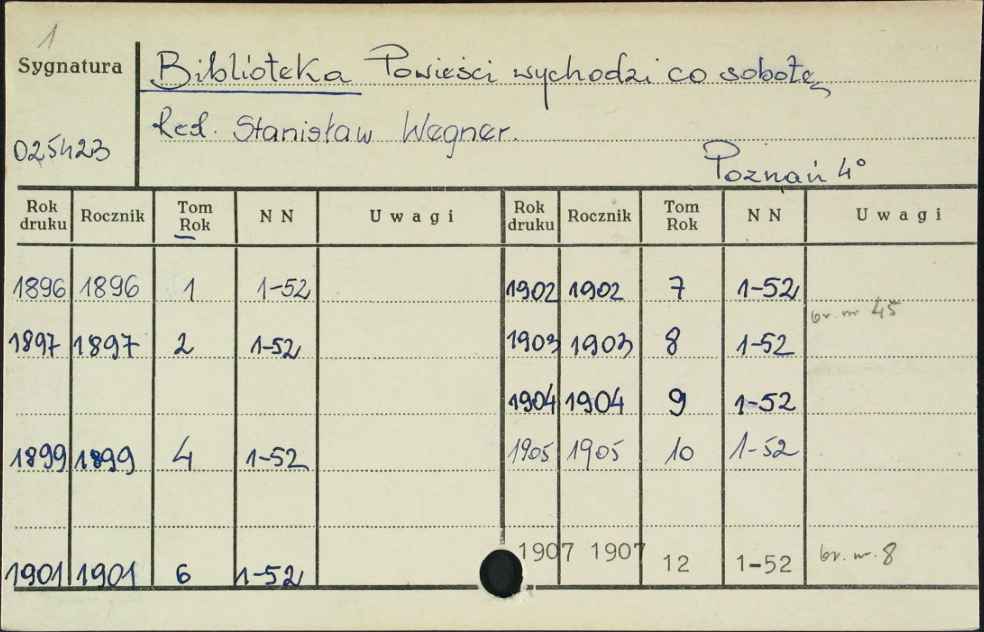 1
Sygnatura
Biblioteka Powieści wychodzi co sobotę
Red. Stanisław Wegner.
025423
Poznań 4°
Rok druku Rocznik Tom Rok NN Uwagi Rok druku Rocznik Tom Rok NN Uwagi
1896 1896 1 1-52 1902 1902 7 1-52
br. nr 45
1897 1897 2 1-52 1903 1903 8 1-52
1904 1904 9 1-52
1899 1899 4 1-52 1905 1905 10 1-52
1901 1901 6 1-52 1907 1907 12 1-52 br. nr. 8